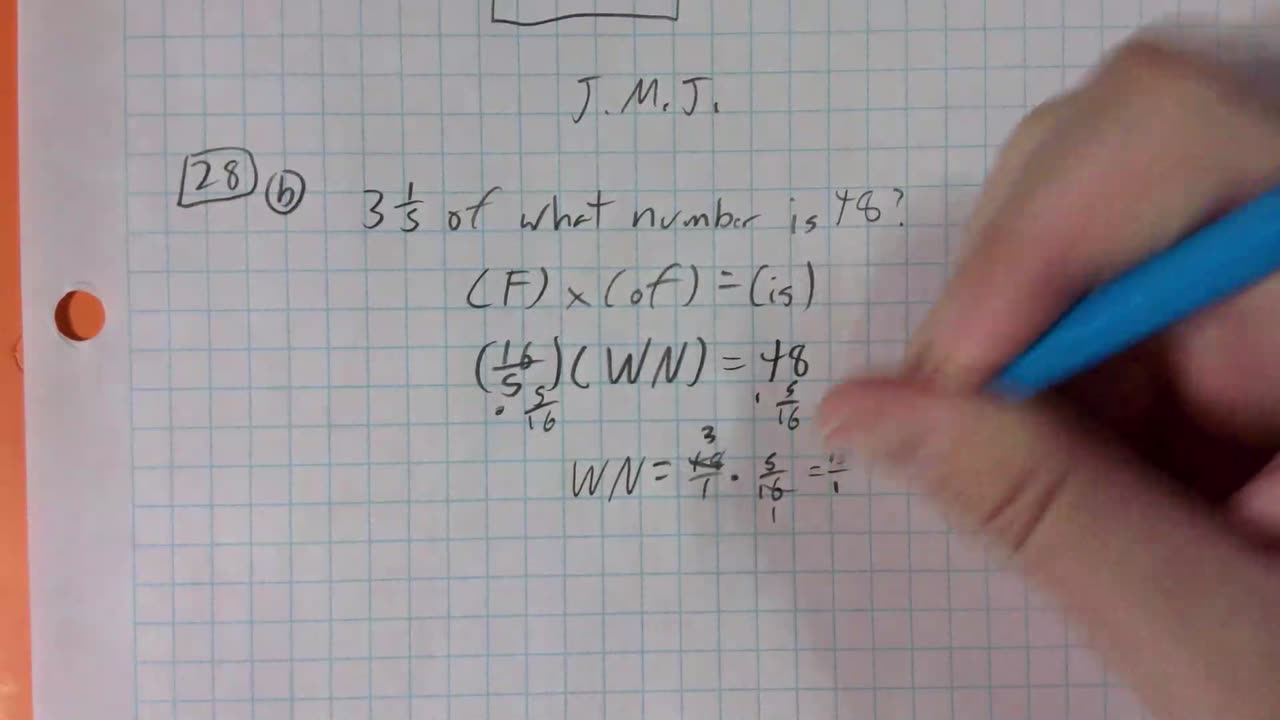 J.M.J.
28 (b) 3 1/5 of what number is 48?
(F) × (of) = (is)
(16/5)(WN) = 48
· 5/16 · 5/16
3
WN = 48/1 · 5/16 = /1
1